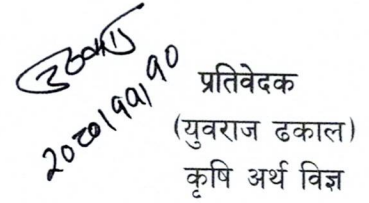 २०८०|११|१०
प्रतिवेदक
(युवराज ढकाल)
कृषि अर्थ विज्ञ